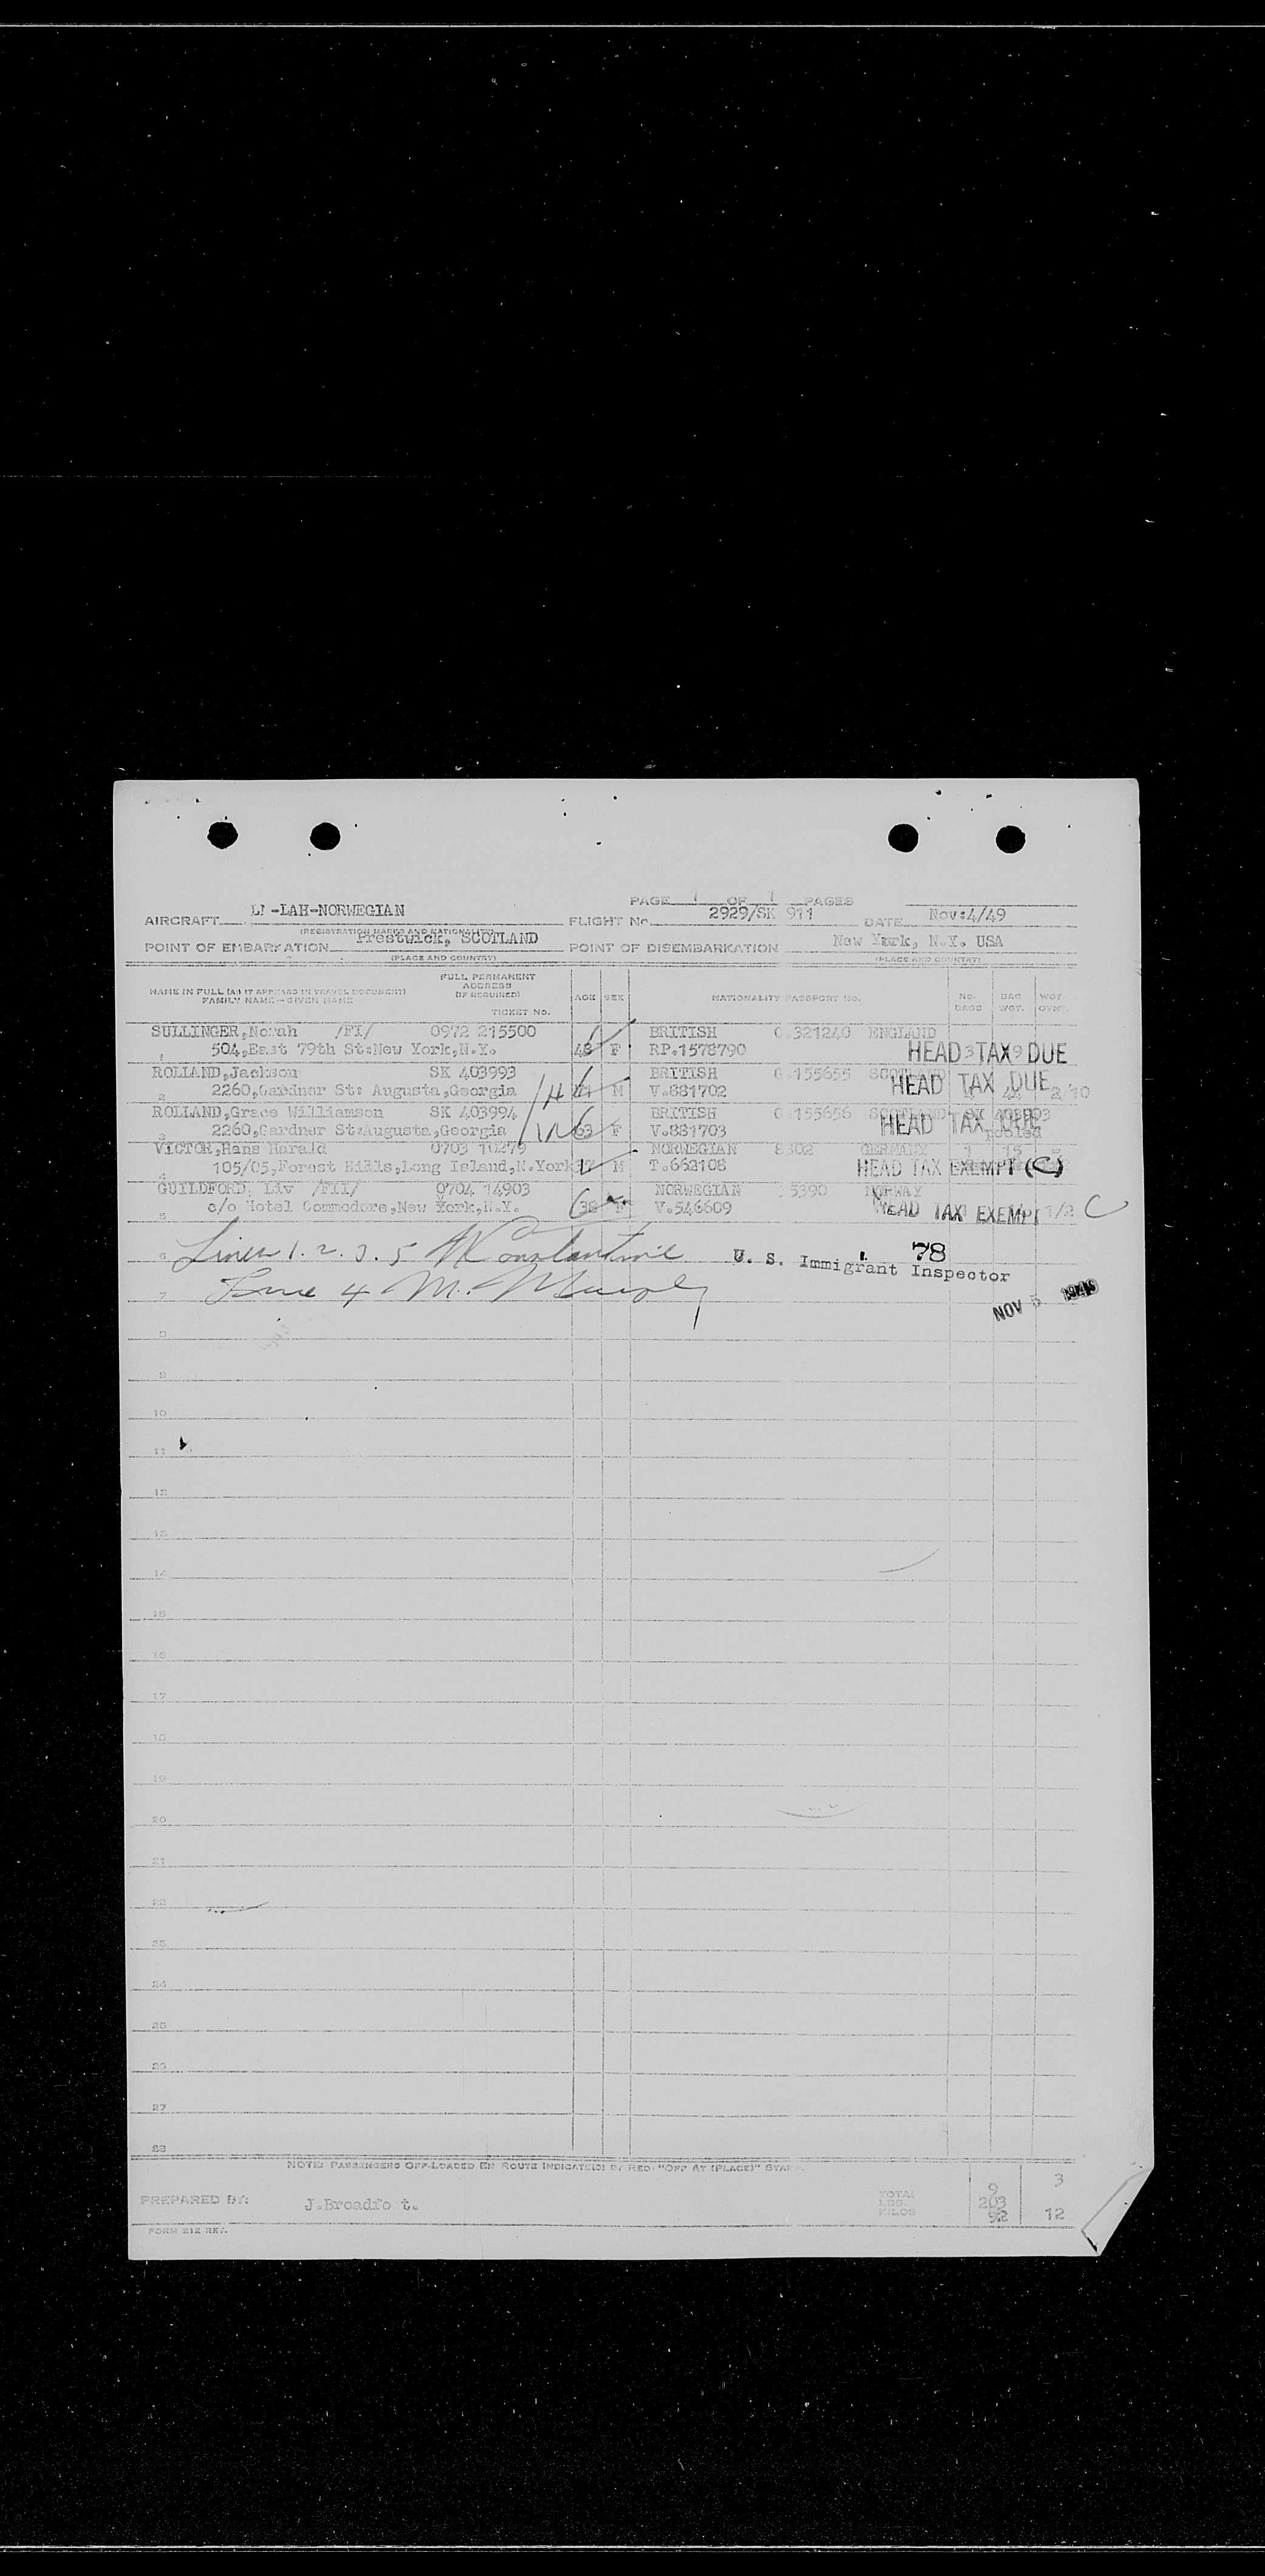 PAGE 1 OF 1 PAGES
AIRCRAFT LN-LAH-NORWEGIAN FLIGHT No. 2929/SK 911 DATE Nov:4/49
(REGISTRATION MARKS AND NATIONALITY)
POINT OF EMBARKATION Prestwick, SCOTLAND POINT OF DISEMBARKATION New York, N.Y. USA
(PLACE AND COUNTRY) (PLACE AND COUNTRY)
NAME IN FULL (AS IT APPEARS IN TRAVEL DOCUMENT) FAMILY NAME - GIVEN NAME FULL PERMANENT ADDRESS (IF REQUIRED) TICKET No. AGE SEX NATIONALITY PASSPORT No. No. BAGS BAG WGT. WGT. OVWT.
SULLINGER,Norah /FI/ 0972 215500 BRITISH C.321240 ENGLAND
1 504,East 79th St:New York,N.Y. 48 F RP.1578790 HEAD TAX DUE
ROLLAND,Jackson SK 403993 BRITISH C.155655 SCOTLAND
2 2260,Gardner St: Augusta,Georgia M V.881702 HEAD TAX DUE
ROLLAND,Grace Williamson SK 403994 BRITISH C.155656 SCOTLAND SK 403993
3 2260,Gardner St:Augusta,Georgia 63 F V.881703 HEAD TAX DUE pooled
VICTOR,Hans Harald 0703 10279 NORWEGIAN 8302 GERMANY 1 15
4 105/05,Forest Hills,Long Island,N.York M T.662108 HEAD TAX EXEMPT (C)
GUILDFORD, Liv /FII/ 0704 14903 NORWEGIAN 5390 NORWAY
5 c/o Hotel Commodore,New York,N.Y. 38 F V.546609 HEAD TAX EXEMPT C
6 Lines 1. 2. 3. 5 Constantine U. S. Immigrant Inspector 78
7 Line 4 M. Murphy NOV 5 1949
8
9
10
11
12
13
14
15
16
17
18
19
20
21
22
23
24
25
26
27
28
NOTE: PASSENGERS OFF-LOADED EN ROUTE INDICATED BY RED "OFF AT (PLACE)" STAMP.
PREPARED BY: J.Broadfo t. TOTAL 9 3
LBS. 203
KILOS 92 12
FORM 212 REV.